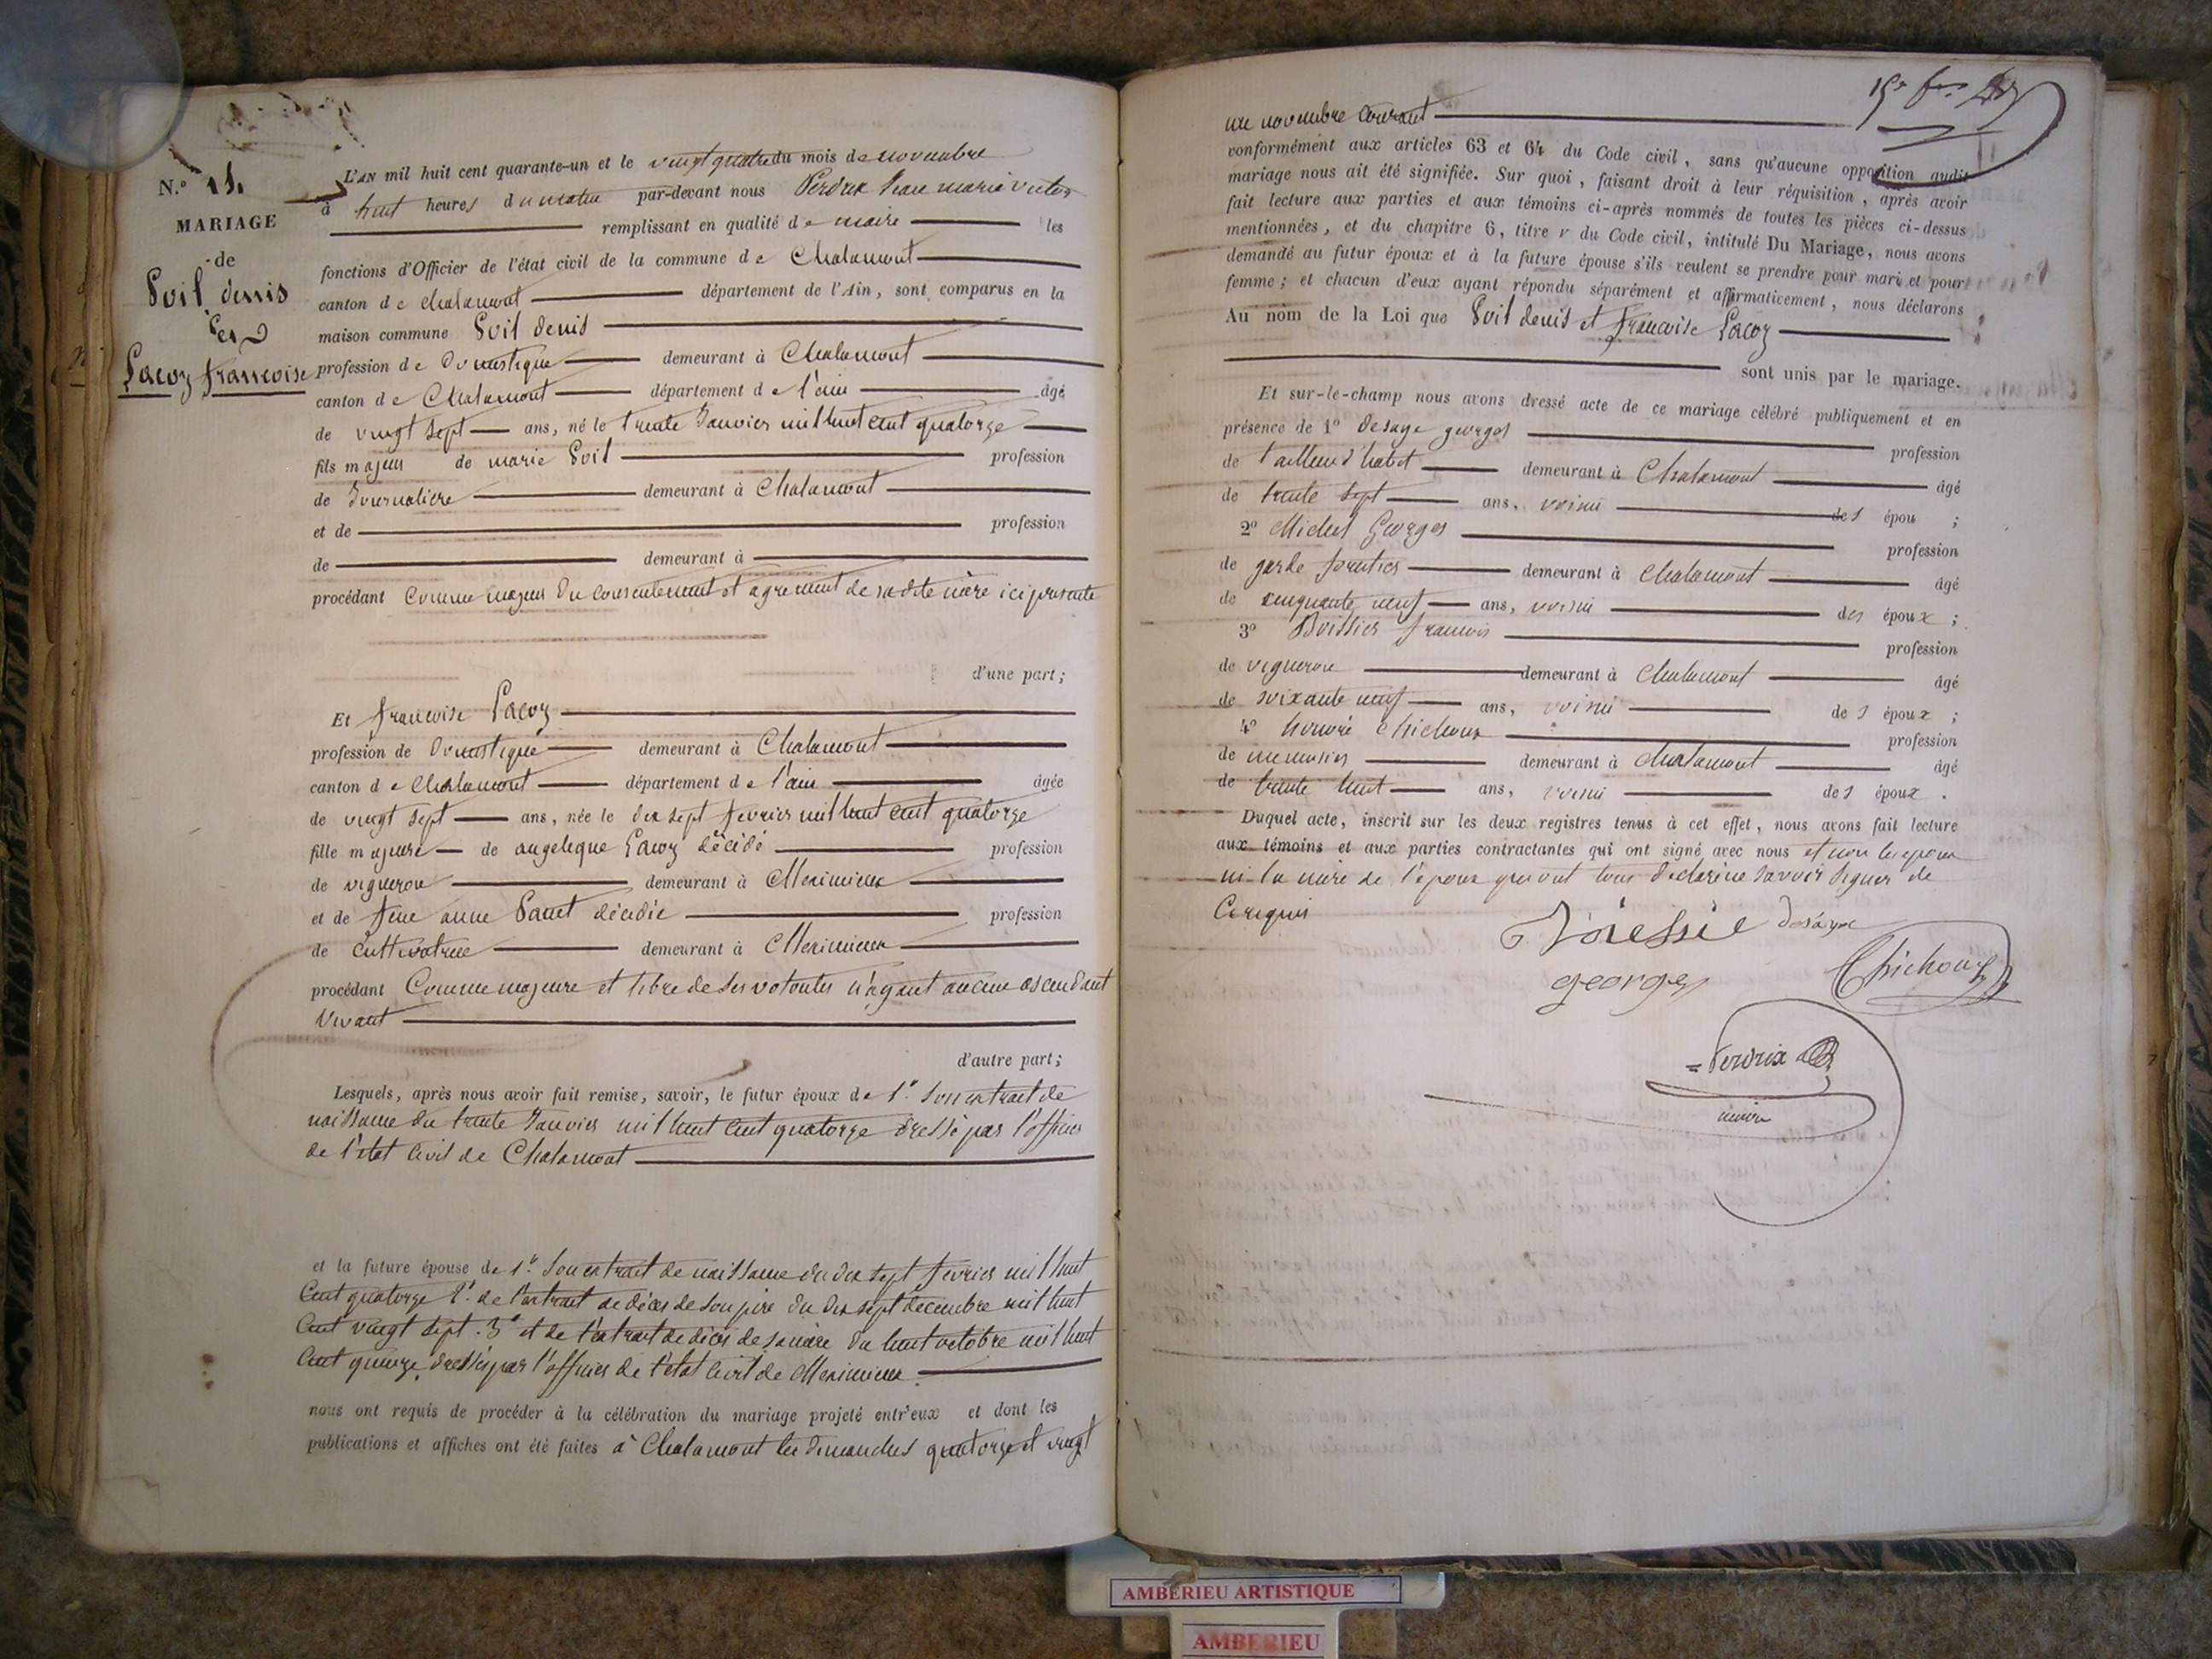 N.° 15.
MARIAGE
de
Poil denis
et
Lacoz francoise
L'AN mil huit cent quarante-un et le vingt quatre du mois de novembre
à huit heures du matin par-devant nous Perdrix Jean marie victor
remplissant en qualité de maire les
fonctions d'Officier de l'état civil de la commune de Chalamont
canton de chalamont département de l'Ain, sont comparus en la
maison commune Poil denis
profession de domestique demeurant à Chalamont
canton de Chalamont département de l'ain âgé
de vingt sept ans, né le trente Janvier mil huit cent quatorze
fils majeur de marie Poil profession
de Journaliere demeurant à Chalamont
et de profession
de demeurant à
procédant Comme majeur du consentement et agrement de sadite mère ici presente
d'une part;
Et francoise Lacoz
profession de domestique demeurant à Chalamont
canton de Chalamont département de l'ain âgée
de vingt sept ans, née le dix sept fevrier mil huit cent quatorze
fille majeure de angelique Lacoz décédé profession
de vigneron demeurant à Meximieux
et de feue anne décédée profession
de cultivatrice demeurant à Meximieux
procédant Comme majeure et libre de ses volontés n'ayant aucun ascendant
vivant
d'autre part;
Lesquels, après nous avoir fait remise, savoir, le futur époux de 1° son extrait de
naissance du trente Janvier mil huit cent quatorze dressé par l'officier
de l'état civil de Chalamont
et la future épouse de 1° son extrait de naissance du dix sept fevrier mil huit
cent quatorze 2° de l'extrait de décès de son père du dix sept decembre mil huit
cent vingt sept. 3° et de l'extrait de décès de sa mère du huit octobre mil huit
cent quinze, dressés par l'officier de l'état civil de Meximieux
nous ont requis de procéder à la célébration du mariage projeté entr'eux et dont les
publications et affiches ont été faites à Chalamont les dimanches quatorze et vingt
un novembre courant
conformément aux articles 63 et 64 du Code civil, sans qu'aucune opposition audit
mariage nous ait été signifiée. Sur quoi, faisant droit à leur réquisition, après avoir
fait lecture aux parties et aux témoins ci-après nommés de toutes les pièces ci-dessus
mentionnées, et du chapitre 6, titre v du Code civil, intitulé Du Mariage, nous avons
demandé au futur époux et à la future épouse s'ils veulent se prendre pour mari et pour
femme; et chacun d'eux ayant répondu séparément et affirmativement, nous déclarons
Au nom de la Loi que Poil denis et francoise Lacoz
sont unis par le mariage.
Et sur-le-champ nous avons dressé acte de ce mariage célébré publiquement et en
présence de 1° desaye georges profession
de tailleur d'habit demeurant à Chalamont âgé
de trente sept ans, voisin des épou ;
2° Michel Georges profession
de garde forestier demeurant à Chalamont âgé
de cinquante neuf ans, voisin des époux ;
3° Boissier francois profession
de vigneron demeurant à Chalamont âgé
de soixante neuf ans, voisin des époux ;
4° honoré Chichoux profession
de menuisier demeurant à Chalamont âgé
de trente huit ans, voisin des époux .
Duquel acte, inscrit sur les deux registres tenus à cet effet, nous avons fait lecture
aux témoins et aux parties contractantes qui ont signé avec nous et non les epoux
ni la mère de l'epoux qui ont tous declaré ne savoir signer de
ce requis
desaye
georges
Chichoux
Perdrix
maire
AMBERIEU ARTISTIQUE
AMBERIEU